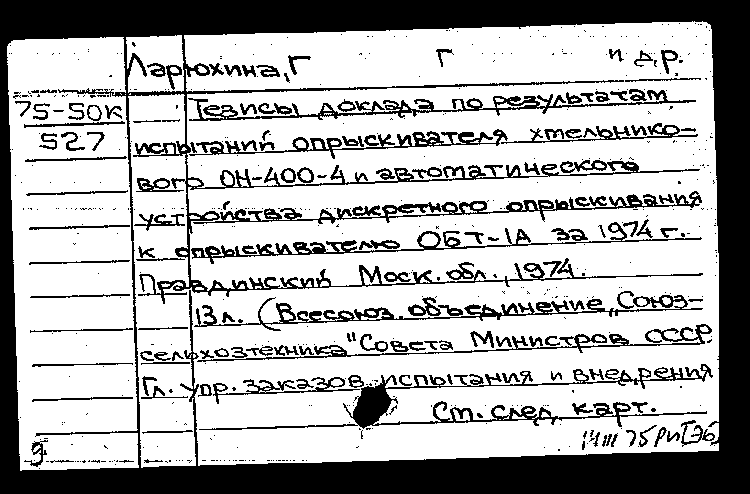 Ларюхина, Г Г и др.
75-50К Тезисы доклада по результатам
527 испытаний опрыскивателя хмельнико-
вого ОН-400-4 и автоматического
устройства дискретного опрыскивания
к опрыскивателю ОБТ-1А за 1974 г.
Правдинский Моск. обл., 1974.
13 л. (Всесоюз. объединение „Союз-
сельхозтехника" Совета Министров СССР
Гл. упр. заказов, испытания и внедрения
См. след. карт.
9 14 III 75 РИ [ЭБ]